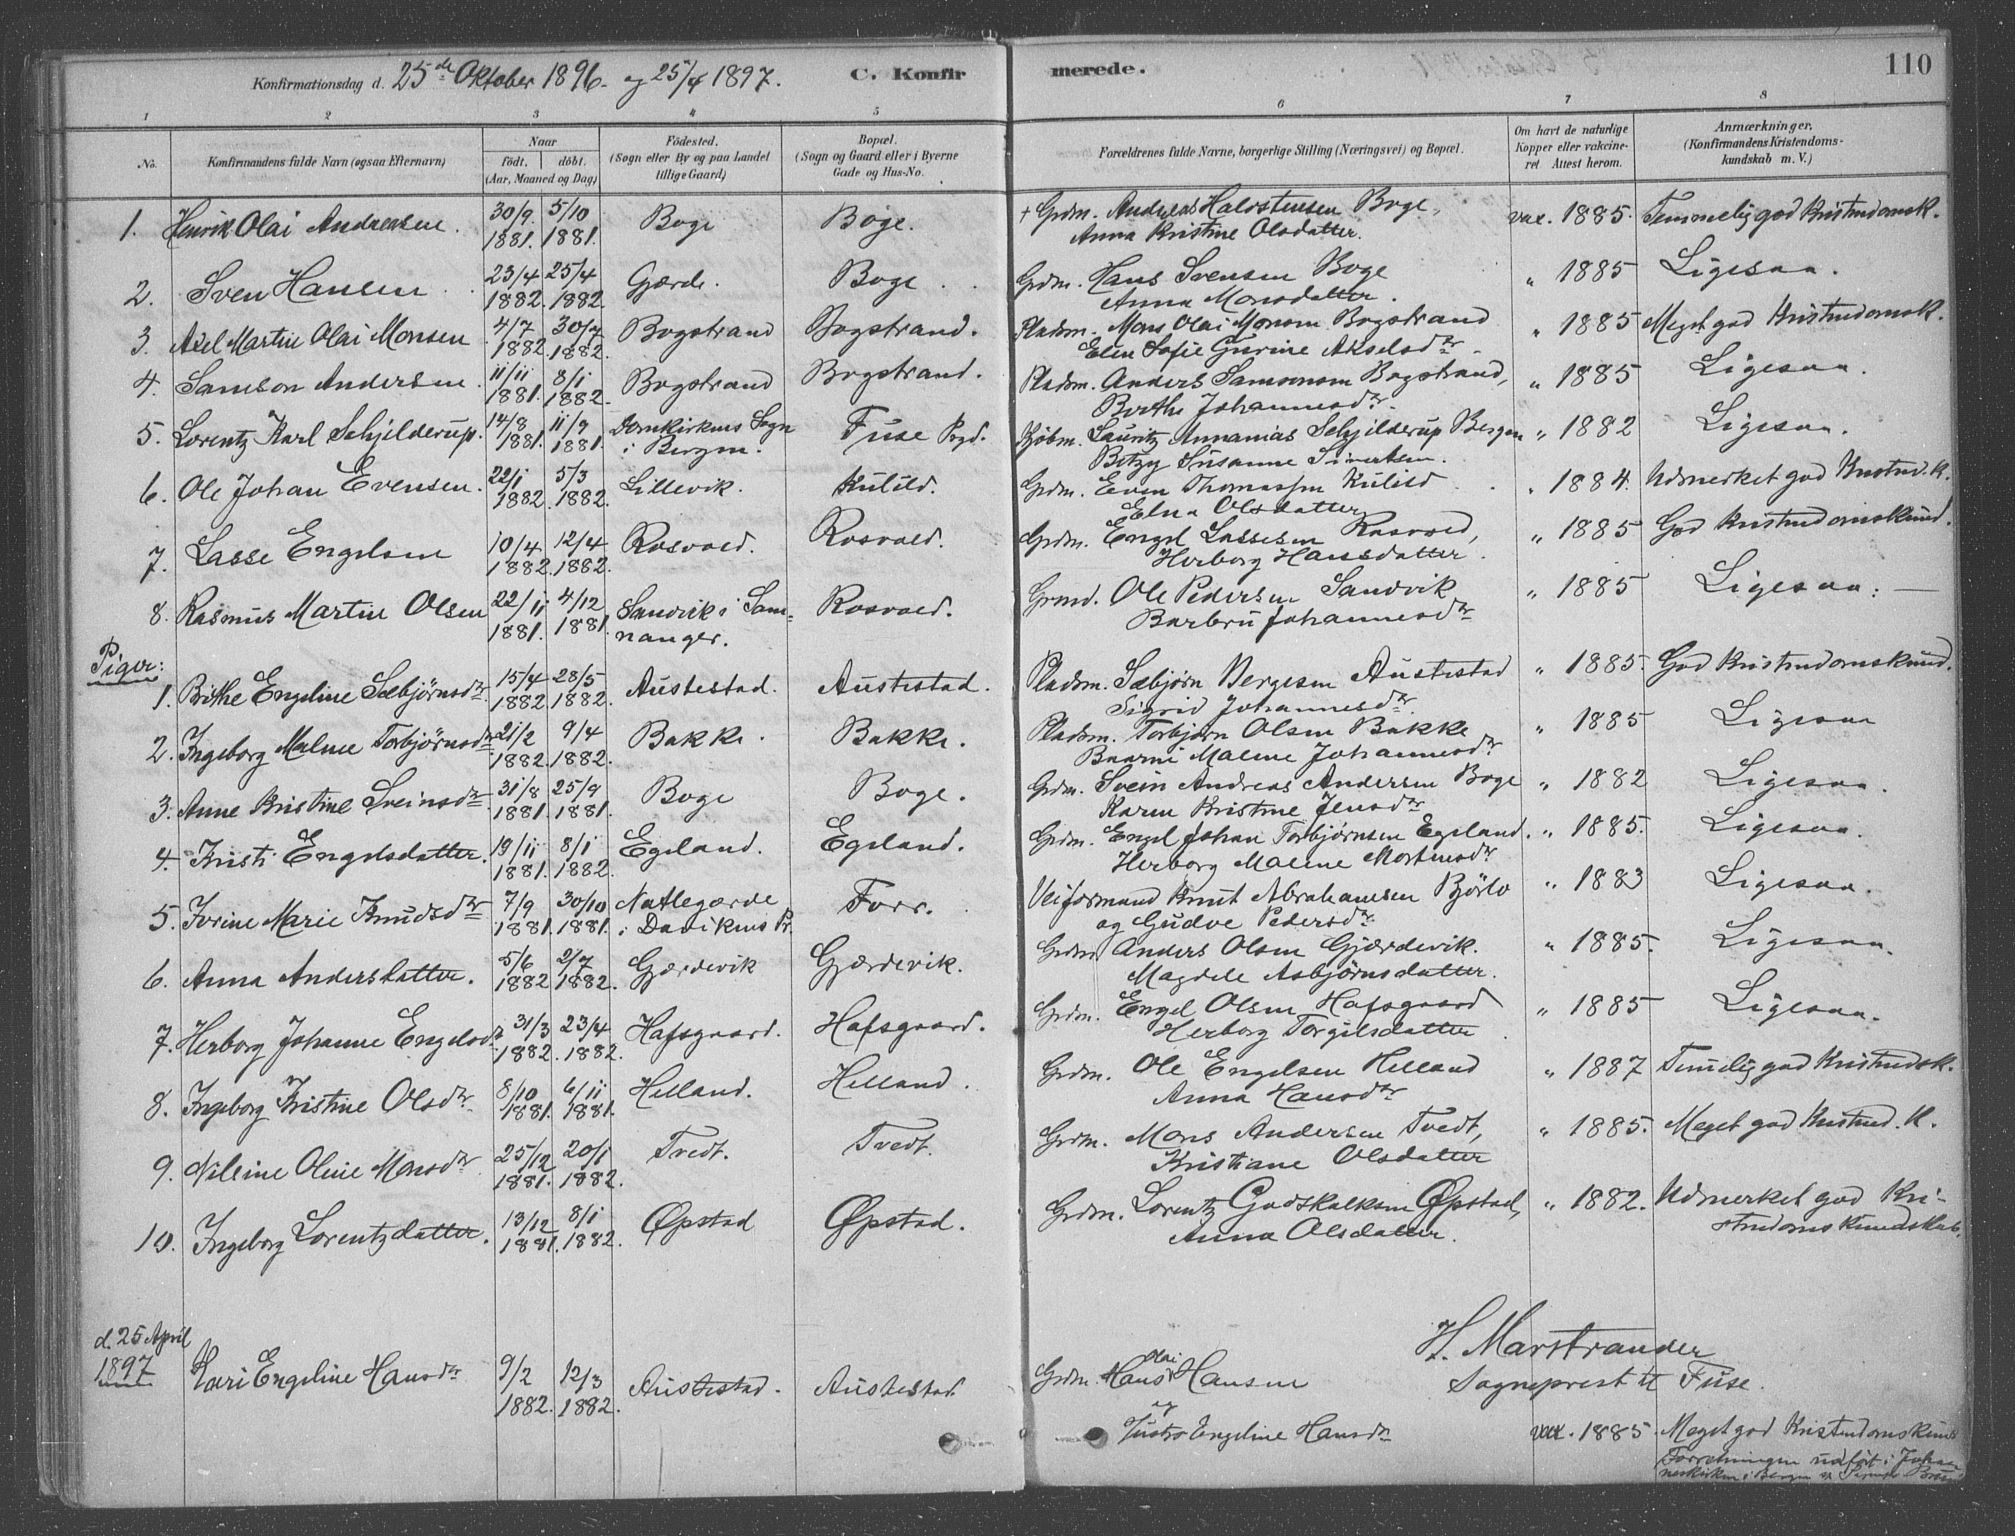 110
Konfirmationsdag d. 25de Oktober 1896. og 25/4 1897. C. Konfirmerede.
1 2 3 4 5 6 7 8
No. Konfirmandens fulde Navn (ogsaa Efternavn)
Naar født. døbt. (Aar, Maaned og Dag)
Fødested. (Sogn eller By og paa Landet tillige Gaard)
Bopæl. (Sogn og Gaard eller i Byerne Gade og Hus-No.
Forældrenes fulde Navne, borgerlige Stilling (Næringsvei) og Bopæl.
Om havt de naturlige Kopper eller vaccineret Attest herom.
Anmærkninger. (Konfirmandens Kristendomskundskab m. V.)
1. Henrik Olai Andersen. 30/9 1881. 5/10 1881. Boge Boge. + Grdm. Anders Halvstensen Boge, vax. 1885. Temmelig god Kristendomsk.
Anna Kristine Olsdatter.
2. Sven Hansen 23/4 1882. 25/4 1882. Gjærde. Boge Grdm. Hans Svensen Boge " 1885 Ligesaa.
Anna Monsdatter.
3. Axel Martin Olai Monsen 4/7 1882. 30/7 1882. Bogstrand Bogstrand. Pladsm. Mons Olai Monsen Bogstrand " 1885 Meget god Kristendomsk.
Elen Sofie Gurine Akselsdtr.
4. Samson Andersen 11/11 1881. 8/1 1882. Bogstrand Bogstrand. Pladsm. Anders Samsonsen Bogstrand, " 1885 Ligesaa.
Berthe Johannesdtr.
5. Lorentz Karl Schjelderup. 14/8 1881. 11/9 1881. Domkirkens Sogn i Bergen. Fuse Prgd. Kjøbm. Lauritz Annanias Schjelderup Bergen " 1882 Ligesaa.
Betzy Susanne Sivertsen.
6. Ole Johan Evensen. 22/1 1882. 5/3 1882. Lillevik. Kulild. Grdm. Even Thomassen Kulild " 1884. Udmerket god Kristend. K.
Elna Olsdatter
7. Lasse Engelsen 10/4 1882. 12/4 1882. Rosvold. Rosvold. Grdm. Engel Lassesen Rosvold, " 1885 God Kristendomskund.
Herborg Hansdatter.
8. Rasmus Martin Olsen 22/11 1881. 4/12 1881. Sandvik i Samnanger. Rosvold. Grmd. Ole Pedersen Sandvik " 1885 Ligesaa. —
Barbru Johannesdtr
Piger:
1. Brithe Engeline Sæbjørnsdtr 15/4 1882. 28/5 1882. Austestad. Austestad. Pladsm. Sæbjørn Bergesen Austestad " 1885. God Kristendomskund.
Sigrid Johannesdtr.
2. Ingeborg Malene Torbjørnsdtr 21/2 1882. 9/4 1882. Bakke. Bakke. Pladsm. Torbjørn Olsen Bakke " 1885 Ligesaa
Malene Johannesdtr
3. Anne Kristine Sveinsdtr 31/8 1881. 25/9 1881. Boge Boge. Grdm. Svein Andreas Andersen Boge " 1882 Ligesaa.
Karen Kristine Jensdtr
4. Kristi Engelsdatter. 19/11 1881. 8/1 1882. Egeland. Egeland. Grdm. Engel Johan Torbjørnsen Egeland. " 1885. Ligesaa.
Herborg Malene Mortensdtr
5. Jorine Marie Knudsdtr 7/9 1881. 30/10 1881. Natlegærde i Davikens Pr. Forr. Veiformand Knut Abrahamsen Bjørlo " 1883 Ligesaa.
og Gudve Pedersdtr
6. Anna Andersdatter. 5/6 1882 2/7 1882. Gjærdevik Gjærdevik. Grdm. Anders Olsen Gjærdevik. " 1885. Ligesaa.
Magdele Asbjørnsdatter.
7. Herborg Johanne Engelsdtr 31/3 1882. 23/4 1882. Hafsgaard. Hafsgaard. Grdm. Engel Olsen Hafsgaard " 1885 Ligesaa.
Herborg Torgilsdatter
8. Ingeborg Kristine Olsdtr. 8/10 1881. 6/11 1881. Helland. Helland. Grdm. Ole Engelsen Helland " 1887 Temmelig god Kristendsk.
Anna Hansdtr
9. Nilsine Oline Monsdtr 25/12 1881. 20/1 1882. Tvedt. Tvedt. Grdm. Mons Andersen Tvedt, " 1885. Meget god Kristend. K.
Kristiane Olsdatter
10. Ingeborg Lorentzdatter. 13/12 1881. 8/1 1882. Øpstad Øpstad. Grdm. Lorentz Godskalksen Øpstad, " 1882. Udmerket god Kristendomskundskab.
Anna Olsdatter.
H. Marstrander
Sogneprest til Fuse.
d. 25 April 1897
Kari Engeline Hansdtr 9/2 1882. 12/3 1882. Austestad. Austestad Grdm. Hans Olai Hansen
og Engeline Hansdtr vax. 1885. Meget god Kristendomskund
Forretningen udført i Johanneskirken i Bergen